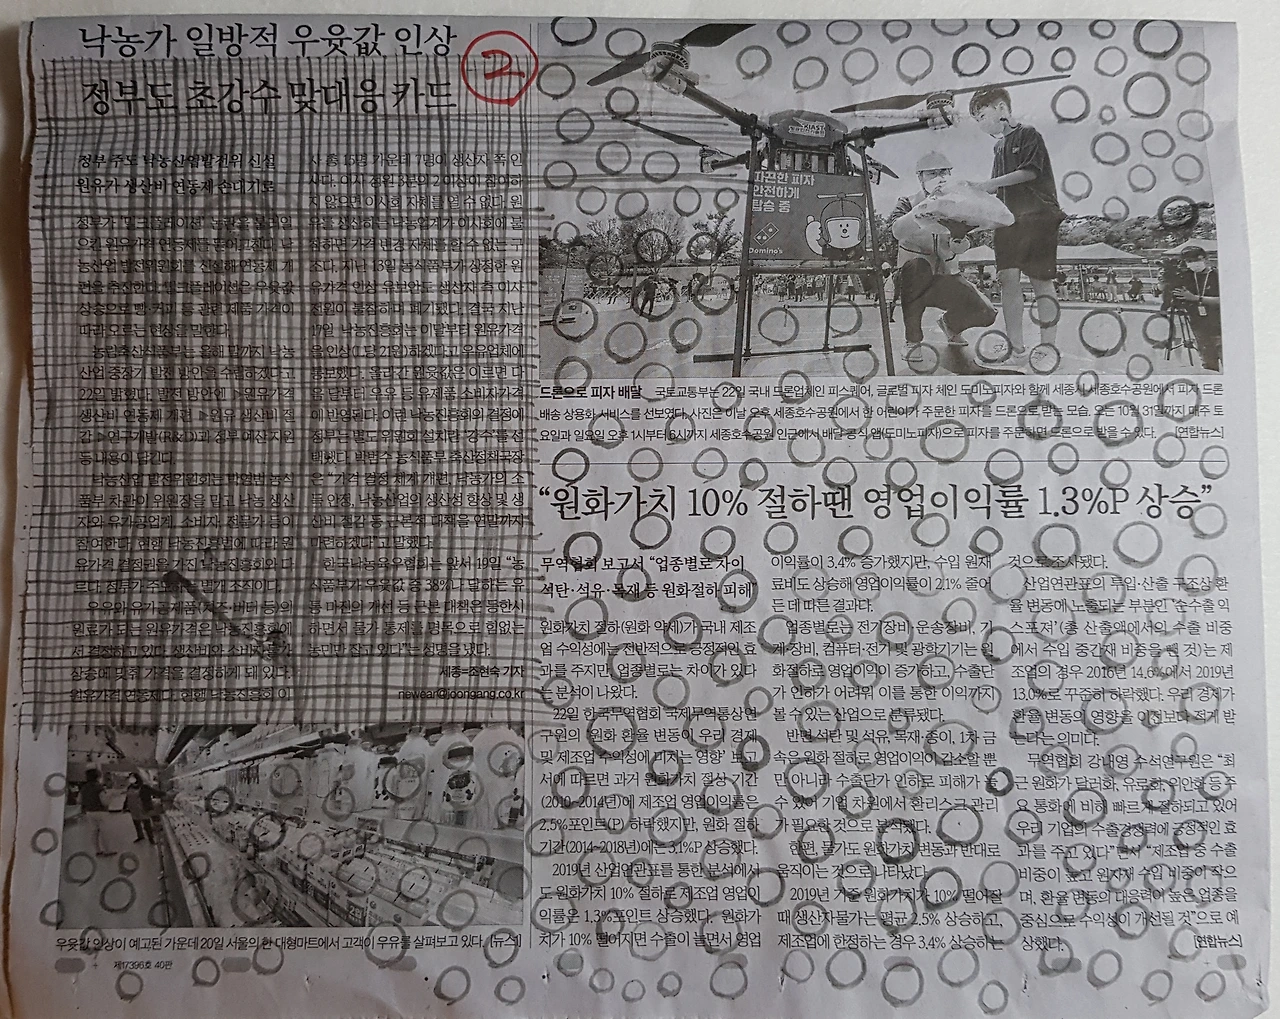 낙농가 일방적 우윳값 인상
정부도 초강수 맞대응 카드
②
정부 주도 낙농산업발전위 신설
원유가 생산비 연동제 손대기로
정부가 ‘밀크플레이션’ 논란을 불러일
으킨 원유가격 연동제를 뜯어고친다. 낙
농산업 발전위원회를 신설해 연동제 개
편을 추진한다. 밀크플레이션은 우윳값
상승으로 빵·커피 등 관련 제품 가격이
따라 오르는 현상을 말한다.
농림축산식품부는 올해 말까지 낙농
산업 중장기 발전 방안을 수립하겠다고
22일 밝혔다. 발전 방안엔 ▷원유가격
생산비 연동제 개편 ▷원유 생산비 절
감 ▷연구개발(R&D)과 정부 예산 지원
등 내용이 담긴다.
낙농산업 발전위원회는 박영범 농식
품부 차관이 위원장을 맡고 낙농 생산
자와 유가공업계, 소비자, 전문가 등이
참여한다. 현행 낙농진흥법에 따라 원
유가격 결정권을 가진 낙농진흥회와 다
르다. 정부가 주도하는 별개 조직이다.
우유와 유가공제품(치즈·버터 등)의
원료가 되는 원유가격은 낙농진흥회에
서 결정하고 있다. 생산비와 소비자물가
상승에 맞춰 가격을 결정하게 돼 있다.
원유가격 연동제다. 현행 낙농진흥회 이
사 총 15명 가운데 7명이 생산자 쪽 인
사다. 이사 정원 3분의 2 이상이 참여하
지 않으면 이사회 자체를 열 수 없다. 원
유를 생산하는 낙농업계가 이사회에 불
참하면 가격 변경 자체를 할 수 없는 구
조다. 지난 13일 농식품부가 상정한 원
유가격 인상 유보안도 생산자 측 이사
전원이 불참하며 폐기됐다. 결국 지난
17일 낙농진흥회는 이달부터 원유가격
을 인상(L당 21원)하겠다고 우유업체에
통보했다. 올라간 원윳값은 이르면 다
음 달부터 우유 등 유제품 소비자가격
에 반영된다. 이런 낙농진흥회의 결정에
정부는 별도 위원회 설치란 ‘강수’를 선
택했다. 박범수 농식품부 축산정책국장
은 “가격 결정 체계 개편, 낙농가의 소
득 안정, 낙농산업의 생산성 향상 및 생
산비 절감 등 근본적 대책을 연말까지
마련하겠다”고 말했다.
한국낙농육우협회는 앞서 19일 “농
식품부가 우윳값 중 38%나 달하는 유
통 마진의 개선 등 근본 대책은 등한시
하면서 물가 통제를 명목으로 힘없는
농민만 잡고 있다”는 성명을 냈다.
세종=조현숙 기자
newear@joongang.co.kr
우윳값 인상이 예고된 가운데 20일 서울의 한 대형마트에서 고객이 우유를 살펴보고 있다. [뉴스1]
제17396호 40판
KIAST
따끈한 피자
안전하게
탑승 중
Domino's
드론으로 피자 배달 국토교통부는 22일 국내 드론업체인 피스퀘어, 글로벌 피자 체인 도미노피자와 함께 세종시 세종호수공원에서 피자 드론
배송 상용화 서비스를 선보였다. 사진은 이날 오후 세종호수공원에서 한 어린이가 주문한 피자를 드론으로 받는 모습. 오는 10월 31일까지 매주 토
요일과 일요일 오후 1시부터 6시까지 세종호수공원 인근에서 배달 공식 앱(도미노피자)으로 피자를 주문하면 드론으로 받을 수 있다. [연합뉴스]
“원화가치 10% 절하땐 영업이익률 1.3%P 상승”
무역협회 보고서 “업종별로 차이
석탄·석유·목재 등 원화절하 피해”
원화가치 절하(원화 약세)가 국내 제조
업 수익성에는 전반적으로 긍정적인 효
과를 주지만, 업종별로는 차이가 있다
는 분석이 나왔다.
22일 한국무역협회 국제무역통상연
구원의 ‘원화 환율 변동이 우리 경제
및 제조업 수익성에 미치는 영향’ 보고
서에 따르면 과거 원화가치 절상 기간
(2010~2014년)에 제조업 영업이익률은
2.5%포인트(P) 하락했지만, 원화 절하
기간(2014~2018년)에는 3.1%P 상승했다.
2019년 산업연관표를 통한 분석에서
도 원화가치 10% 절하로 제조업 영업이
익률은 1.3%포인트 상승했다. 원화가
치가 10% 떨어지면 수출이 늘면서 영업
이익률이 3.4% 증가했지만, 수입 원재
료비도 상승해 영업이익률이 2.1% 줄어
든 데 따른 결과다.
업종별로는 전기장비, 운송장비, 기
계·장비, 컴퓨터·전기 및 광학기기는 원
화절하로 영업이익이 증가하고, 수출단
가 인하가 어려워 이를 통한 이익까지
볼 수 있는 산업으로 분류됐다.
반면 석탄 및 석유, 목재·종이, 1차 금
속은 원화 절하로 영업이익이 감소할 뿐
만 아니라 수출단가 인하로 피해가 늘
수 있어 기업 차원에서 환리스크 관리
가 필요한 것으로 분석됐다.
한편, 물가도 원화가치 변동과 반대로
움직이는 것으로 나타났다.
2019년 기준 원화가치가 10% 떨어질
때 생산자물가는 평균 2.5% 상승하고,
제조업에 한정하는 경우 3.4% 상승하는
것으로 조사됐다.
산업연관표의 투입·산출 구조상 환
율 변동에 노출되는 부분인 ‘순수출 익
스포저’(총 산출액에서의 수출 비중
에서 수입 중간재 비중을 뺀 것)는 제
조업의 경우 2016년 14.6%에서 2019년
13.0%로 꾸준히 하락했다. 우리 경제가
환율 변동의 영향을 이전보다 적게 받
는다는 의미다.
무역협회 강내영 수석연구원은 “최
근 원화가 달러화, 유로화, 위안화 등 주
요 통화에 비해 빠르게 절하되고 있어
우리 기업의 수출경쟁력에 긍정적인 효
과를 주고 있다”면서 “제조업 중 수출
비중이 높고 원자재 수입 비중이 작으
며, 환율 변동의 대응력이 높은 업종을
중심으로 수익성이 개선될 것”으로 예
상했다. [연합뉴스]